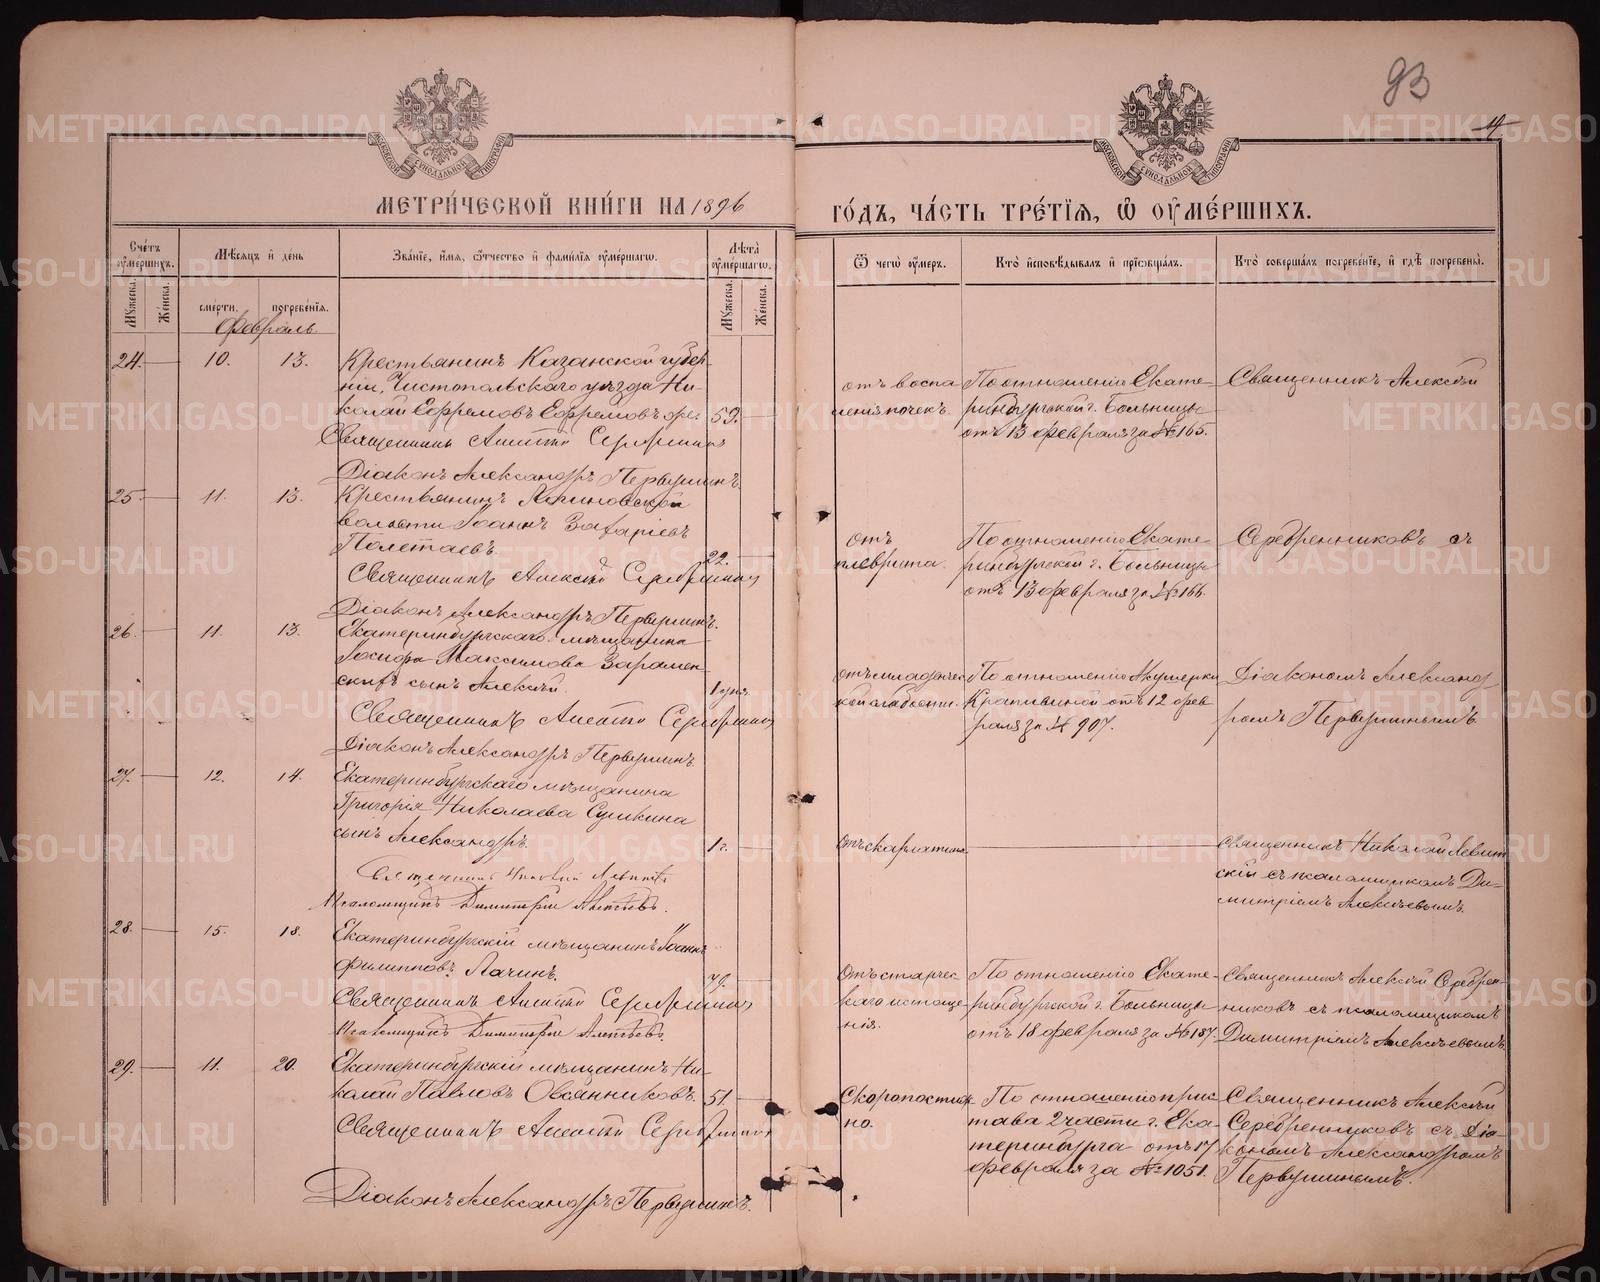 93
МЕТРИ́ЧЕСКОЙ КНИ́ГИ НА 1896
ГО́ДЪ, ЧА́СТЬ ТРЕ́ТІѦ, Ѡ ОУМЕ́РШИХЪ.
Сче́тъ оуме́ршихъ.
Мѣ́сяцъ и де́нь
Зва́нїе, и́мя, ѻ́тчество и фами́лїя оуме́ршагѡ.
Лѣта̀ оуме́ршагѡ.
Ѿ чегѡ̀ оу́меръ.
Кто̀ и҆сповѣ́дывалъ и прїѻбща́лъ.
Кто̀ соверша́лъ погребе́нїе, и гдѣ̀ погребены̀.
Мꙋ́жеска.
Же́нска.
сме́рти.
погребе́нїя.
Мꙋ́жеска.
Же́нска.
Февраль
24. 10. 13. Крестьянинъ Казанской губер-
ніи, Чистопольскаго уѣзда Ни-
колай Ефремовъ Ефремовъ 59.
Священникъ Алексѣй Серебренниковъ
Діаконъ Александръ Первушинъ.
отъ воспа
ленія почекъ.
По отношенію Екате-
ринбургской г. Больницы
отъ 13 февраля за №165.
Священникъ Алексѣй
25. 11. 13. Крестьянинъ
волости Іоаннъ Захаріевъ
Полетаевъ. 22.
Священникъ Алексѣй Серебренниковъ
Діаконъ Александръ Первушинъ.
отъ
плеврита.
По отношенію Екате-
ринбургской г. Больницы
отъ 13 февраля за №166.
Серебренниковъ съ
26. 11. 13. Екатеринбургскаго мѣщанина
Іосифа Максимова
сынъ Алексѣй. 1 дня.
Священникъ Алексѣй Серебренниковъ
Діаконъ Александръ Первушинъ.
отъ младенчес
кой слабости.
По отношенію Акушерки
Крапивиной отъ 12 фев
раля за № 907.
Діакономъ Александ
ромъ Первушинымъ.
27. 12. 14. Екатеринбургскаго мѣщанина
Григорія Николаева Сушкина
сынъ Александръ. 1 г.
Священникъ Николай Левитскій
Псаломщикъ Димитрій Алексѣевъ.
Отъ скарлатина
священникъ Николай Левит
скій съ псаломщикомъ Ди-
митріемъ Алексѣевымъ.
28. 15. 18. Екатеринбургскій мѣщанинъ Іоаннъ
Филипповъ Лачинъ. 79.
Священникъ Алексѣй Серебренниковъ
Псаломщикъ Димитрій Алексѣевъ.
Отъ старчес
каго истоще
нія.
По отношенію Екате-
ринбургской г. Больницы
отъ 18 февраля за №187.
Священникъ Алексѣй Серебрен-
никовъ съ псаломщикомъ
Димитріемъ Алексѣевымъ.
29. 11. 20. Екатеринбургскій мѣщанинъ Ни-
колай Павловъ Овсянниковъ. 51.
Священникъ Алексѣй Серебренниковъ
Діаконъ Александръ Первушинъ.
Скоропостиж
но.
По отношенію прис
тава 2 части г. Ека
теринбурга отъ 17
февраля за №1051.
Священникъ Алексѣй
Серебренниковъ съ діа-
кономъ Александромъ
Первушинымъ.
METRIKI.GASO-URAL.RU